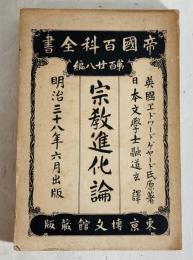 書全科百國帝
編八廿百第
英國エドワード、ケヤード氏原著
日本文學士融道玄譯
宗教進化論
明治三十八年六月出版
版藏館文博京東